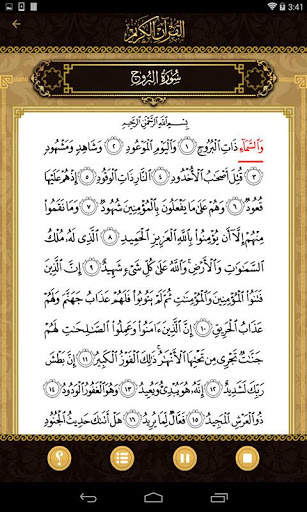 3:41
القرآن الكريم
سُورَةُ الْبُرُوجِ
بِسْمِ اللَّهِ الرَّحْمَٰنِ الرَّحِيمِ
وَالسَّمَاءِ ذَاتِ الْبُرُوجِ ١ وَالْيَوْمِ الْمَوْعُودِ ٢ وَشَاهِدٍ وَمَشْهُودٍ
٣ قُتِلَ أَصْحَابُ الْأُخْدُودِ ٤ النَّارِ ذَاتِ الْوَقُودِ ٥ إِذْ هُمْ عَلَيْهَا
قُعُودٌ ٦ وَهُمْ عَلَىٰ مَا يَفْعَلُونَ بِالْمُؤْمِنِينَ شُهُودٌ ٧ وَمَا نَقَمُوا
مِنْهُمْ إِلَّا أَن يُؤْمِنُوا بِاللَّهِ الْعَزِيزِ الْحَمِيدِ ٨ الَّذِي لَهُ مُلْكُ
السَّمَاوَاتِ وَالْأَرْضِ وَاللَّهُ عَلَىٰ كُلِّ شَيْءٍ شَهِيدٌ ٩ إِنَّ الَّذِينَ
فَتَنُوا الْمُؤْمِنِينَ وَالْمُؤْمِنَاتِ ثُمَّ لَمْ يَتُوبُوا فَلَهُمْ عَذَابُ جَهَنَّمَ وَلَهُمْ
عَذَابُ الْحَرِيقِ ١٠ إِنَّ الَّذِينَ آمَنُوا وَعَمِلُوا الصَّالِحَاتِ لَهُمْ
جَنَّاتٌ تَجْرِي مِن تَحْتِهَا الْأَنْهَارُ ذَٰلِكَ الْفَوْزُ الْكَبِيرُ ١١ إِنَّ بَطْشَ
رَبِّكَ لَشَدِيدٌ ١٢ إِنَّهُ هُوَ يُبْدِئُ وَيُعِيدُ ١٣ وَهُوَ الْغَفُورُ الْوَدُودُ ١٤
ذُو الْعَرْشِ الْمَجِيدُ ١٥ فَعَّالٌ لِّمَا يُرِيدُ ١٦ هَلْ أَتَاكَ حَدِيثُ الْجُنُودِ